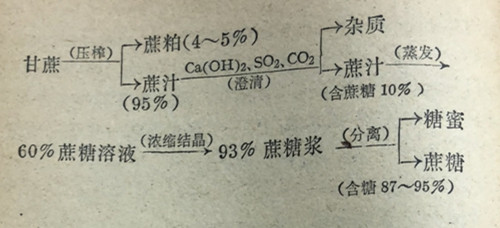 杂质
(压榨) 蔗粕(4～5%) Ca(OH)₂、SO₂、CO₂ (蒸发)
甘蔗 蔗汁 (澄清) 蔗汁
(95%) (含蔗糖 10%)
(浓缩结晶) (分离) 糖蜜
60%蔗糖溶液 93% 蔗糖浆
蔗糖
(含糖 87～95%)